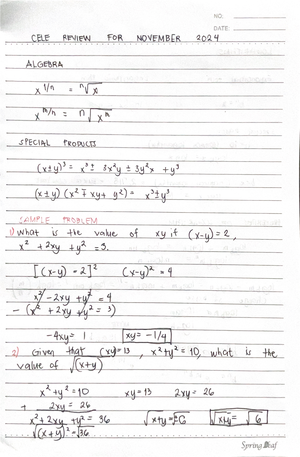 NO.:
DATE:
CELE REVIEW FOR NOVEMBER 2024
ALGEBRA
x^(1/n) = ⁿ√x
x^(m/n) = n√x^m
SPECIAL PRODUCTS
(x±y)³ = x³ ± 3x²y ± 3y²x + y³
(x±y)(x² ∓ xy + y²) = x³±y³
SAMPLE PROBLEM
1) What is the value of xy if (x-y) = 2,
x² + 2xy + y² = 3.
[(x-y) = 2]² (x-y)² = 4
x² - 2xy + y² = 4
- (x² + 2xy + y² = 3)
-4xy = 1 xy = -1/4
2) Given that (xy = 13, x²+y² = 10, what is the
value of √(x+y)
x² + y² = 10 xy = 13 2xy = 26
+ 2xy = 26
x² + 2xy + y² = 36 √x+y = 6
√(x+y)² = √36
Spring Leaf